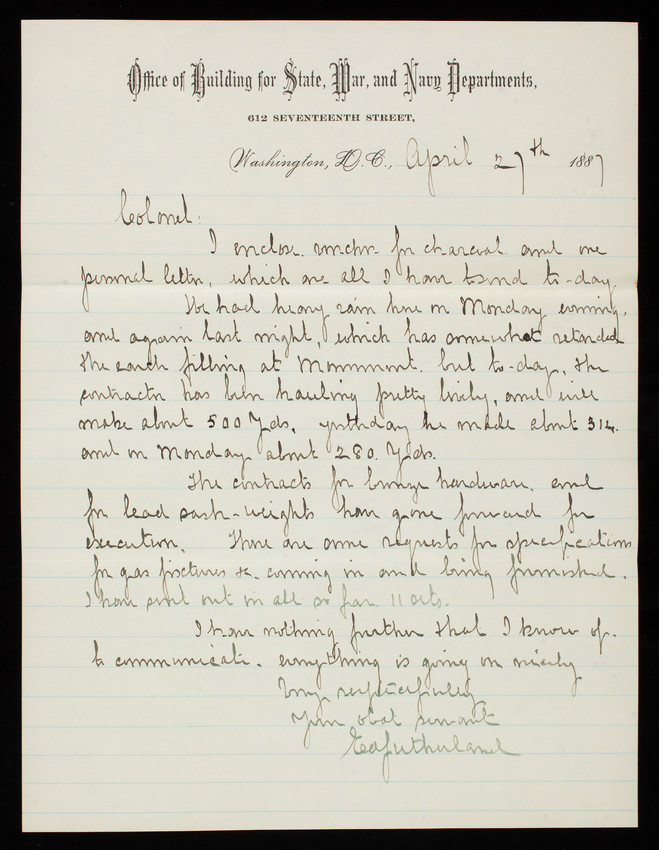 Office of Building for State, War, and Navy Departments,
612 SEVENTEENTH STREET,
Washington, D.C., April 27th 1887
Colonel:
I enclose vouchr. for charcoal and one
personal letter, which are all I have to send to-day.
We had heavy rain here on Monday evening,
and again last night, which has somewhat retarded
the earth filling at Monument. but to-day, the
contractor has been hauling pretty lively, and will
make about 500 Yds, yesterday he made about 314.
and on Monday about 280. Yds.
The contracts for bronze hardware, and
for lead sash-weights have gone forward for
execution. There are some requests for specifications
for gas fixtures &c. coming in and being furnished.
I have sent out in all so far 11 sets.
I have nothing further that I know of.
to communicate. everything is going on nicely
Very respectfully
Your obdt servant
EdSutherland